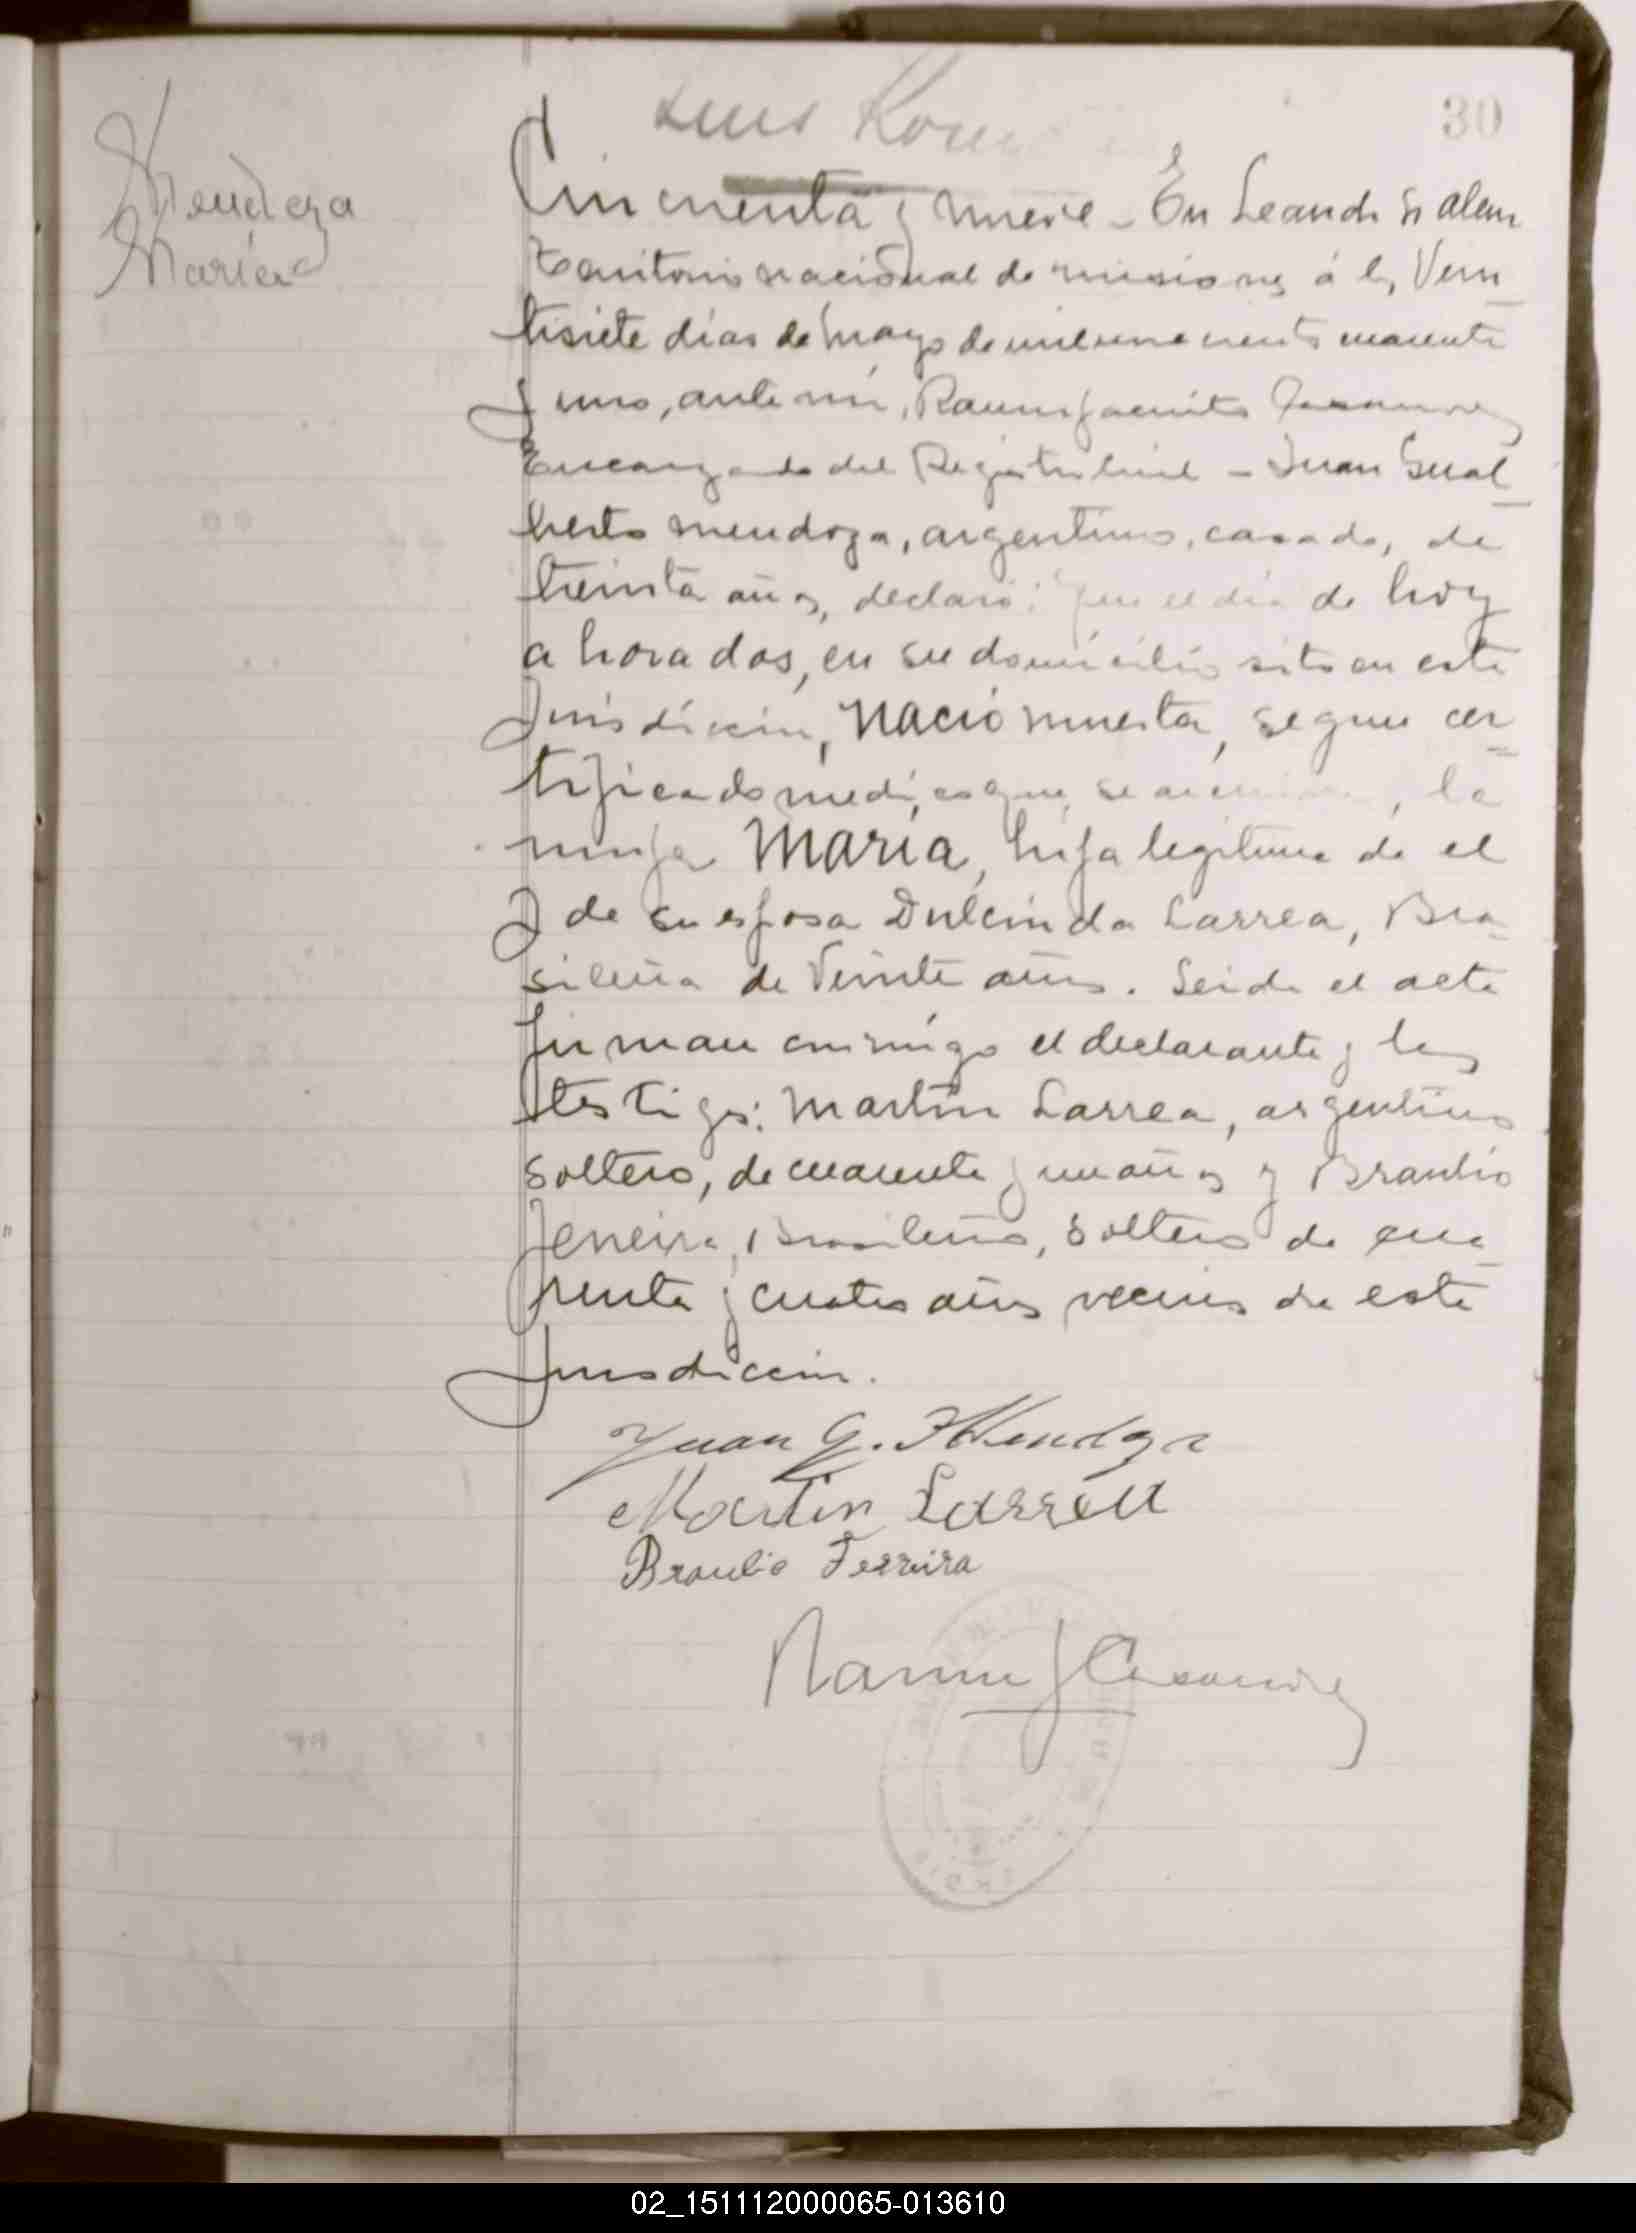 30
Mendoza
María
Cincuenta y nueve - En Leandro N Alem
Territorio nacional de misiones á los Vein
tisiete días de Mayo de mil novecientos cuarenta
y uno, ante mí, Ramón Jacinto
Encargado del Registro Civil - Juan Gual
berto Mendoza, argentino, casado, de
treinta años, declaró: Que el día de hoy
a hora dos, en su domicilio sito en esta
Jurisdicción, nació muerta, segun cer
tificado medico que se archiva, la
mujer María, hija legitima de el
y de su esposa Dulcinda Larrea, Bra
sileña de Veinte años. Leida el acta
firman conmigo el declarante y los
testigos: Martín Larrea, argentino
soltero, de cuarenta y un años y Braulio
Ferreira, Brasileño, soltero de cua
renta y cuatro años vecinos de esta
Jurisdicción.
Juan G. Mendoza
Martin Larrea
Braulio Ferreira
Ramón J
02_151112000065-013610